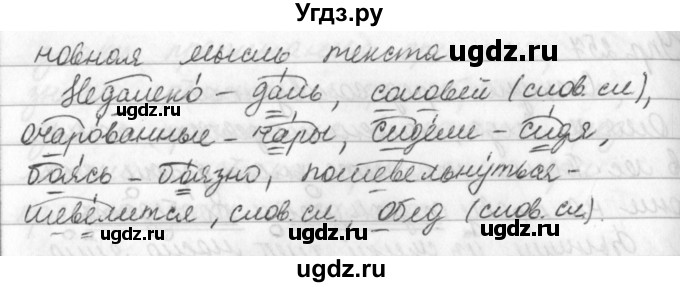 Угдз.ру
новная мысль текста
©ugdz.ru
Недалеко́ – да́ль, соловей (слов. сл.),
ugdz.ru
ugdz.ru
очарованные – ча́ры, сидели – си́дя,
боя́сь – бо́язно, пошевельну́ться –
шеве́лится, слов. сл., обед (слов. сл.).
ugdz.ru
ugdz.ru
©ugdz.ru